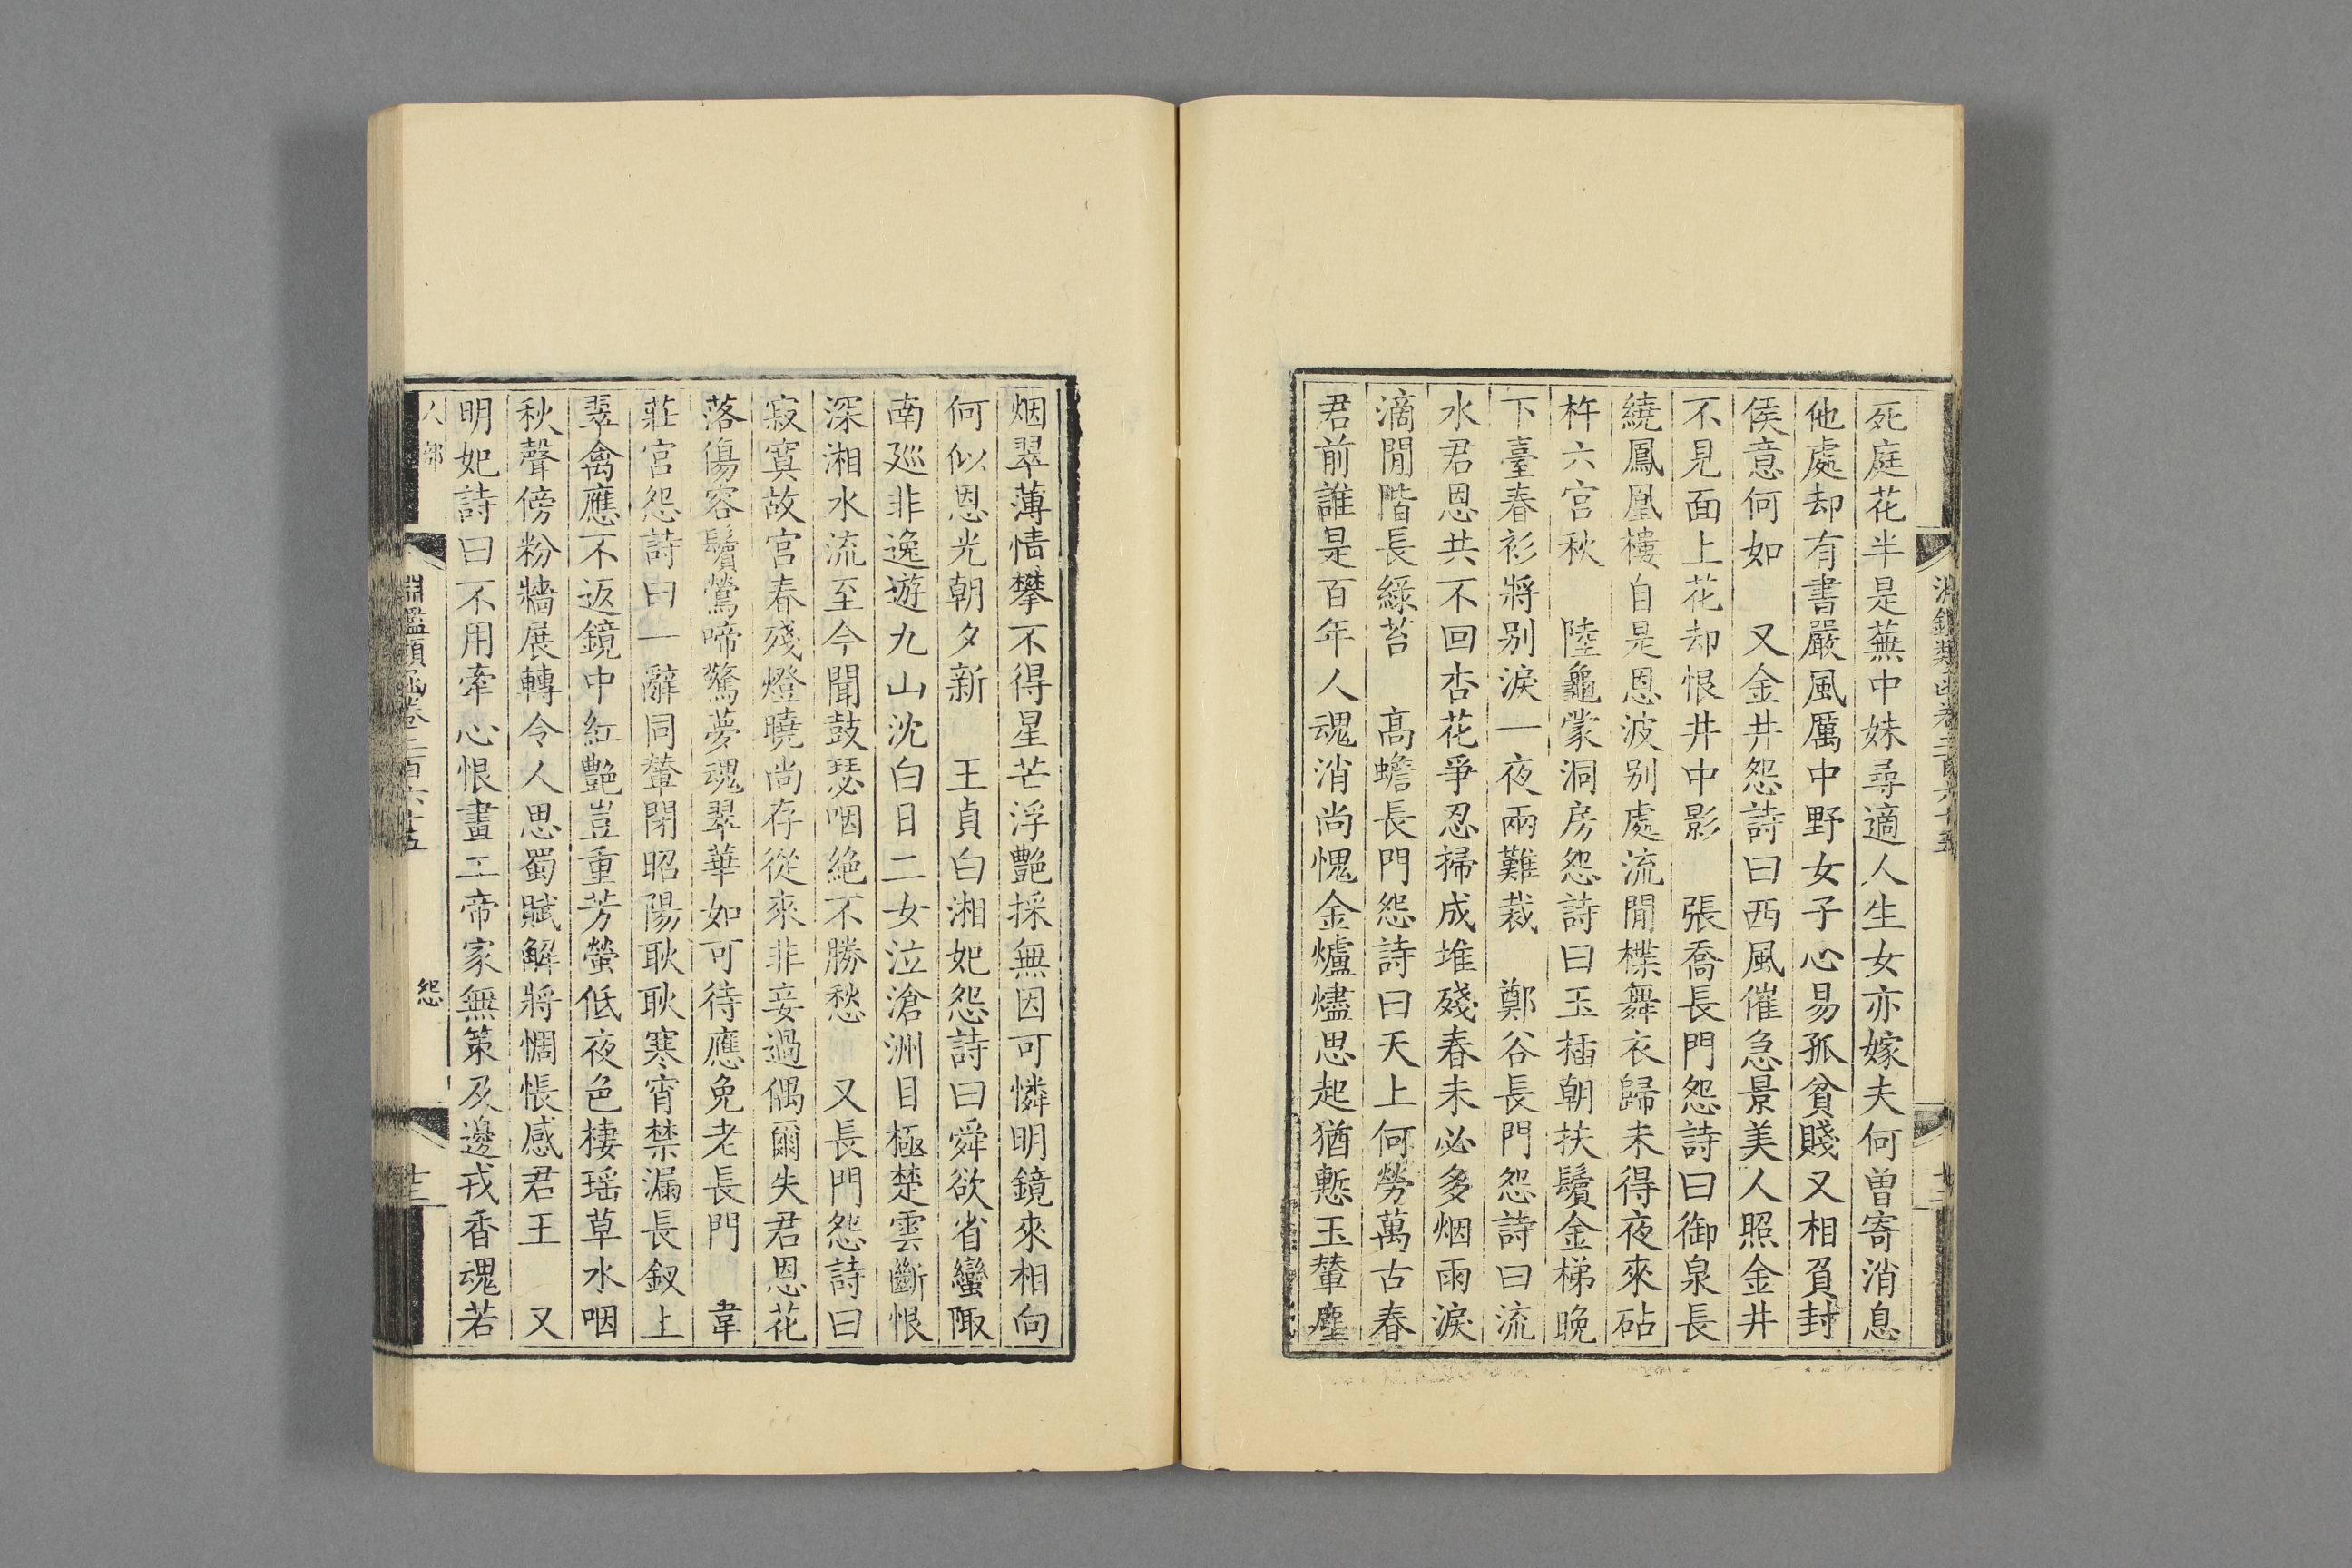 死庭花半是蕪中妹尋適人生女亦嫁夫何曽寄消息
他處却有書嚴風厲中野女子心易孤貧賤又相負封
侯意何如　又金井怨詩曰西風催急景美人照金井
不見面上花却恨井中影　張喬長門怨詩曰御泉長
繞鳳凰樓自是恩波别處流閒㯿舞衣歸未得夜來砧
杵六宫秋　陸龜蒙洞房怨詩曰玉插朝扶鬢金梯晚
下臺春衫將别淚一夜兩難裁　鄭谷長門怨詩曰流
水君恩共不回杏花爭忍掃成堆殘春未必多烟雨淚
滴閒階長綠苔　高蟾長門怨詩曰天上何勞萬古春
君前誰是百年人魂消尚愧金爐燼思起猶慙玉輦塵
烟翠薄情攀不得星芒浮艷採無因可憐明鏡來相向
何似恩光朝夕新　王貞白湘妃怨詩曰舜欲省蠻陬
南廵非逸遊九山沈白日二女泣滄洲目極楚雲斷恨
深湘水流至今聞鼓瑟咽絶不勝愁　又長門怨詩曰
寂寞故宫春殘燈曉尚存從來非妾過偶爾失君恩花
落傷容鬢鶯啼驚夢魂翠華如可待應免老長門　韋
莊宫怨詩曰一辭同輦閉昭陽耿耿寒宵禁漏長釵上
翠禽應不返鏡中紅艷豈重芳螢低夜色棲瑶草水咽
秋聲傍粉牆展轉令人思蜀賦解將惆悵感君王　又
明妃詩曰不用牽心恨畫工帝家無策及邊戎香魂若
人部
淵鑑類函卷二百六十五
怨
十三